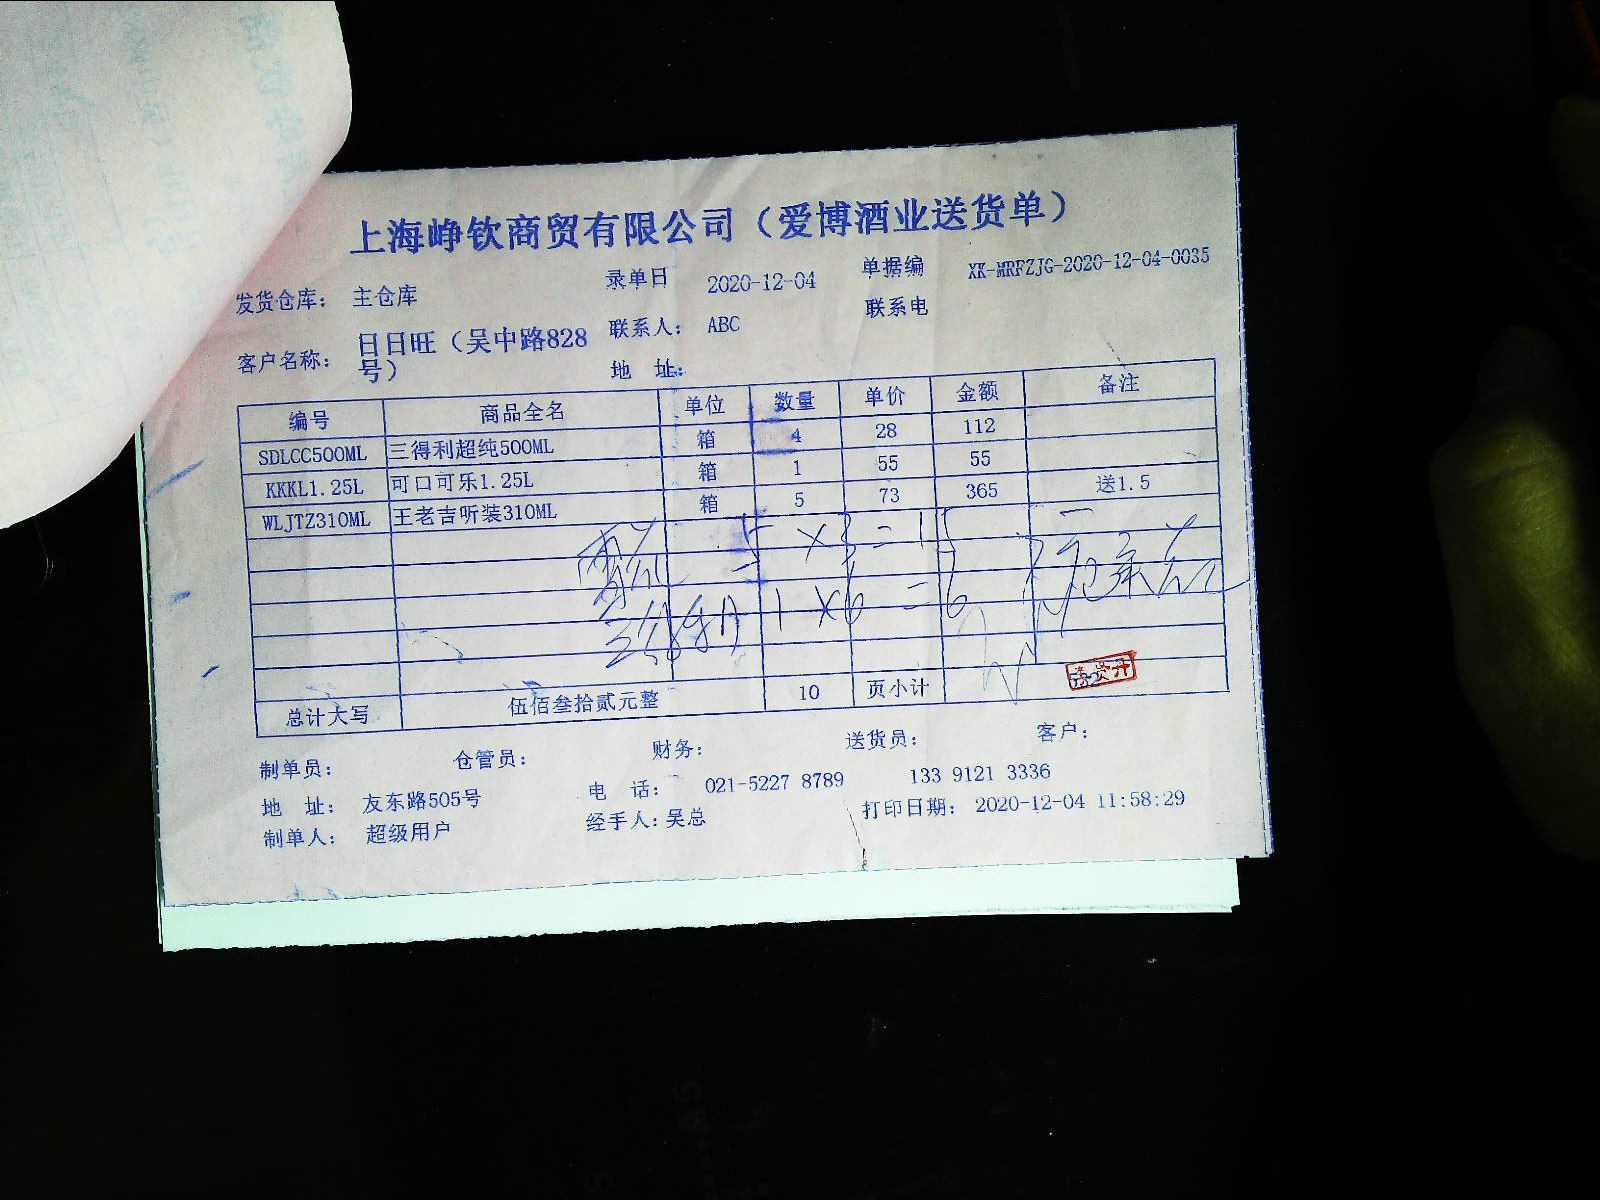 上海峥钦商贸有限公司（爱博酒业送货单）
发货仓库： 主仓库 录单日 2020-12-04 单据编 XK-MRFZJG-2020-12-04-0035
客户名称： 日日旺（吴中路828号） 联系人： ABC 联系电
地 址：
编号 商品全名 单位 数量 单价 金额 备注
SDLCC500ML 三得利超纯500ML 箱 4 28 112
KKKL1.25L 可口可乐1.25L 箱 1 55 55
WLJTZ310ML 王老吉听装310ML 箱 5 73 365 送1.5
5 X3=15
1X6=6
总计大写 伍佰叁拾贰元整 10 页小计
制单员： 仓管员： 财务： 送货员： 客户：
地 址： 友东路505号 电 话： 021-5227 8789 133 9121 3336
制单人： 超级用户 经手人：吴总 打印日期： 2020-12-04 11:58:29